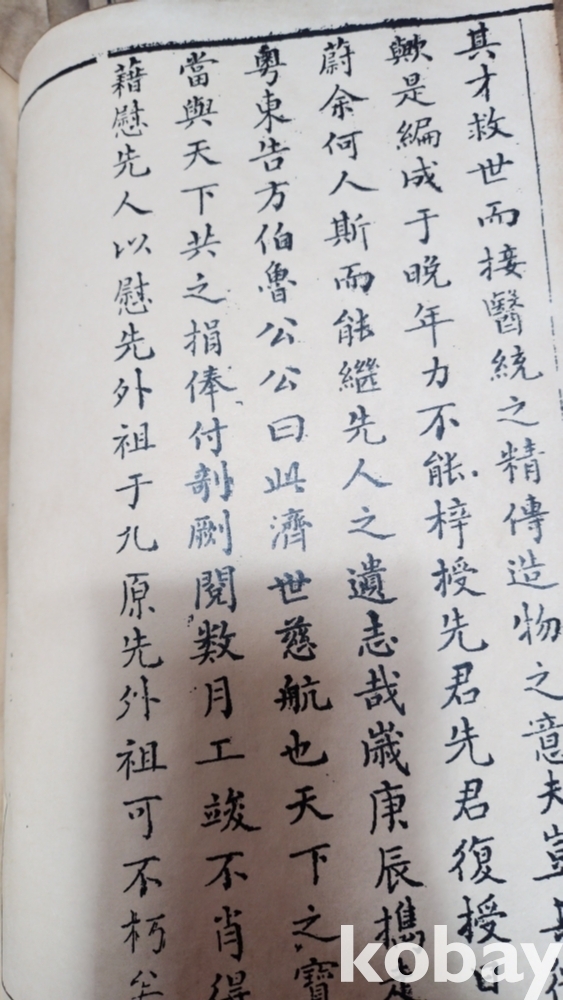 其才救世而接醫統之精傳造物之意夫豈
歟是編成于晚年力不能梓授先君先君復授日
蔚余何人斯而能繼先人之遺志哉歲庚辰攜
粵東告方伯魯公公曰此濟世慈航也天下之寶
當與天下共之捐俸付剞劂閱数月工竣不肖得
藉慰先人以慰先外祖于九原先外祖可不朽矣
kobay